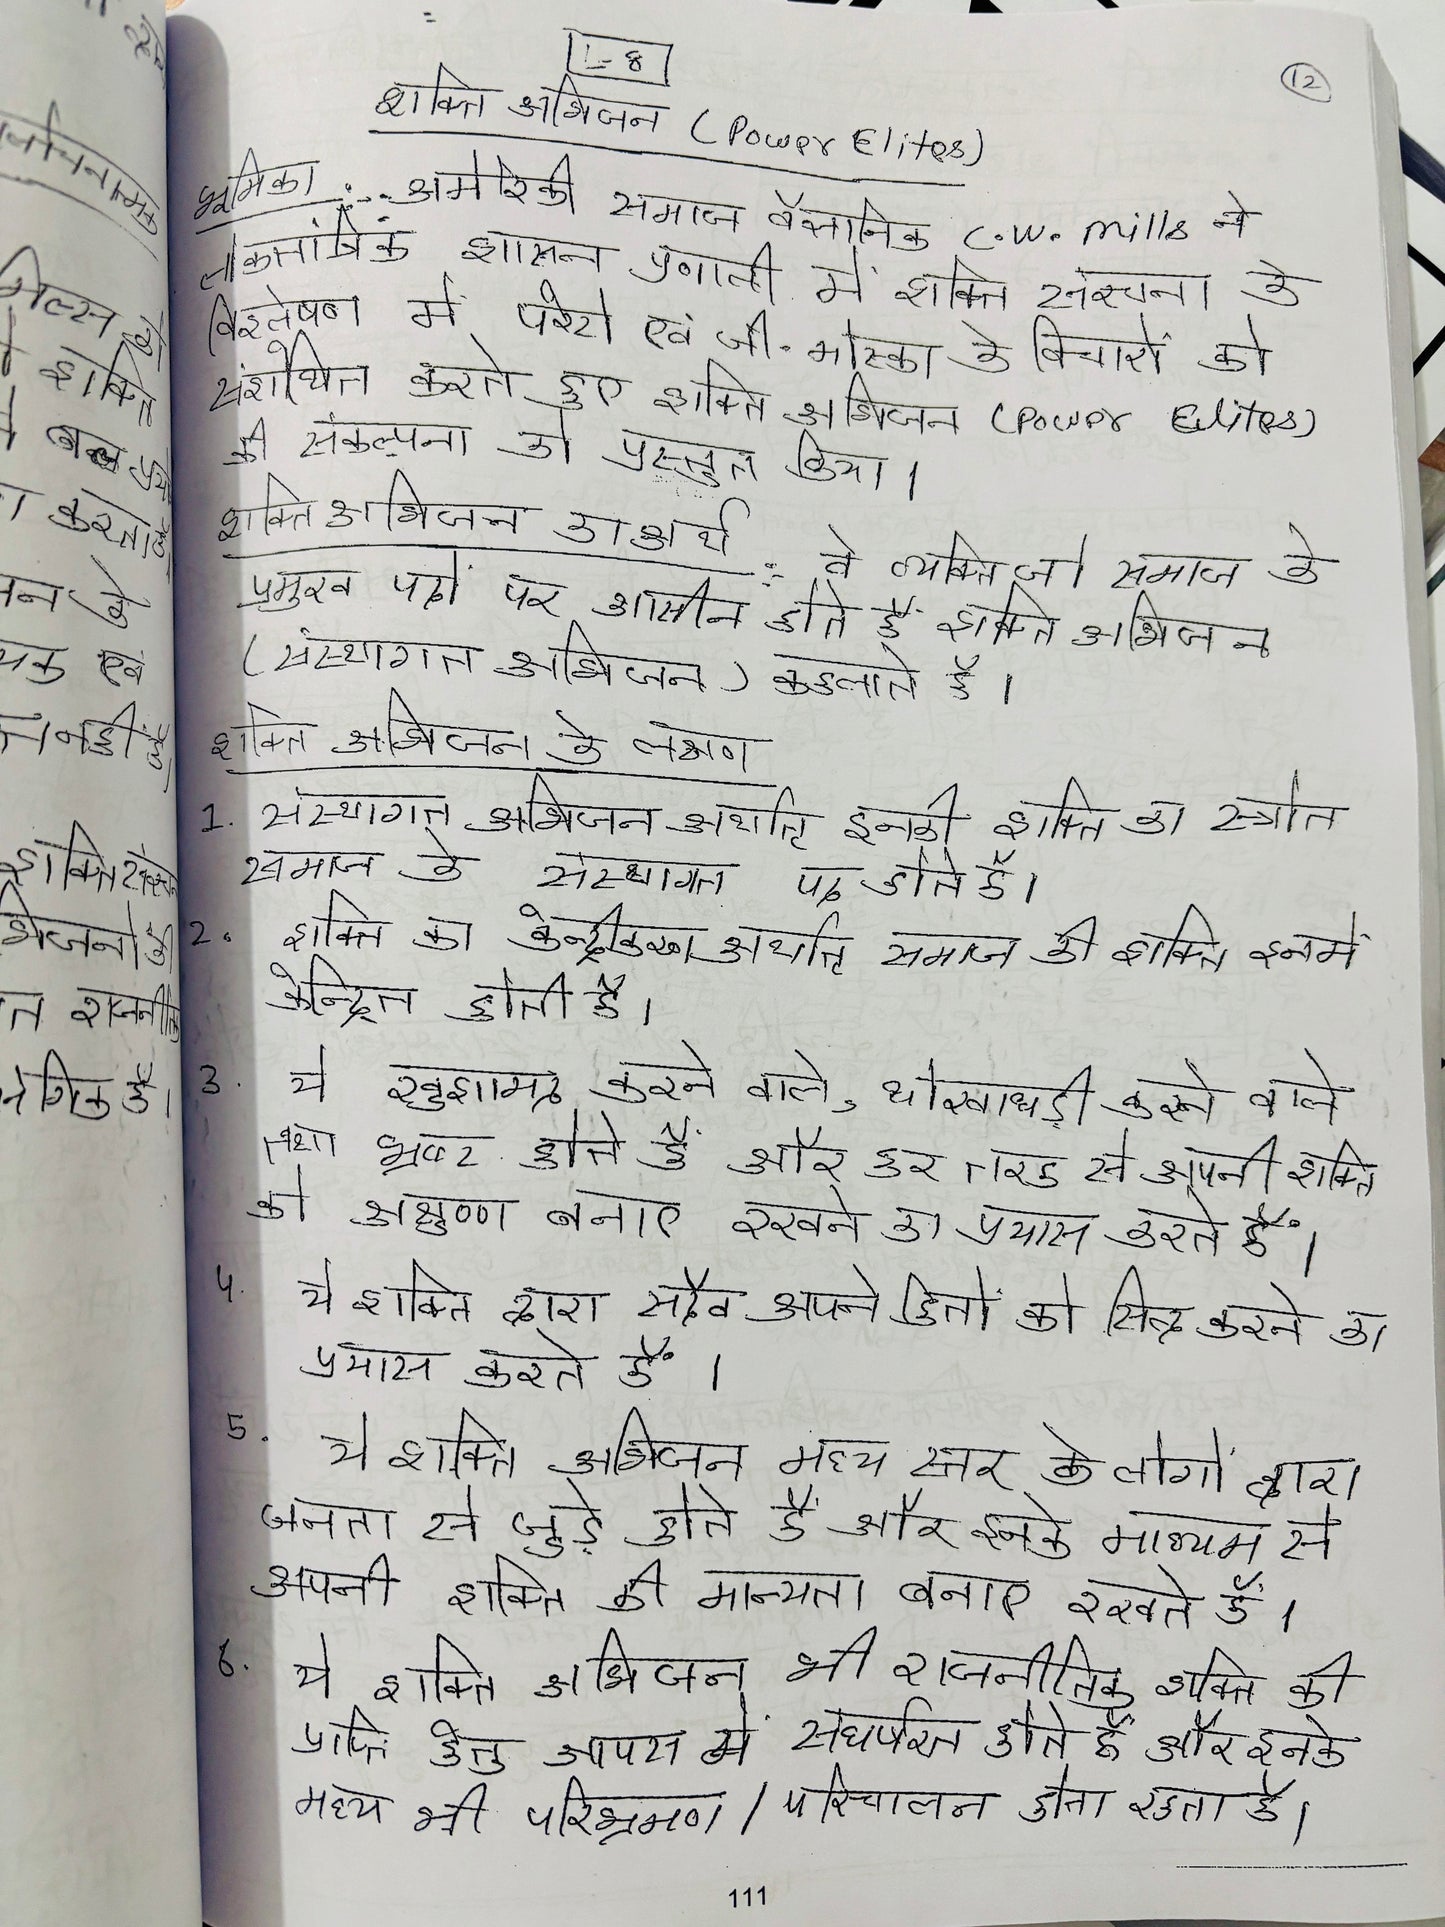 L-8
12
शक्ति अभिजन (Power Elites)
भूमिका :- अमेरिकी समाज वैज्ञानिक C.W. Mills ने
लोकतांत्रिक शासन प्रणाली में शक्ति संरचना के
विश्लेषण में परेटो एवं जी. मोस्का के विचारों को
संशोधित करते हुए शक्ति अभिजन (Power Elites)
की संकल्पना को प्रस्तुत किया।
शक्ति अभिजन का अर्थ :- वे व्यक्ति जो समाज के
प्रमुख पदों पर आसीन होते हैं शक्ति अभिजन
(संस्थागत अभिजन) कहलाते हैं।
शक्ति अभिजन के लक्षण
1. संस्थागत अभिजन अर्थात् इनकी शक्ति का स्त्रोत
समाज के संस्थागत पद होते हैं।
2. शक्ति का केन्द्रीकरण अर्थात् समाज की शक्ति इनमें
केन्द्रित होती है।
3. ये खुशामद करने वाले, धोखाधड़ी करने वाले
तथा भ्रष्ट होते हैं और हर तरह से अपनी शक्ति
को अक्षुण्ण बनाए रखने का प्रयास करते हैं।
4. ये शक्ति द्वारा सदैव अपने हितों को सिद्ध करने का
प्रयास करते हैं।
5. ये शक्ति अभिजन मध्य स्तर के लोगों द्वारा
जनता से जुड़े होते हैं और इनके माध्यम से
अपनी शक्ति की मान्यता बनाए रखते हैं।
6. ये शक्ति अभिजन भी राजनीतिक शक्ति की
प्राप्ति हेतु आपस में संघर्षरत होते हैं और इनके
मध्य भी परिभ्रमण / परिचालन होता रहता है।
111